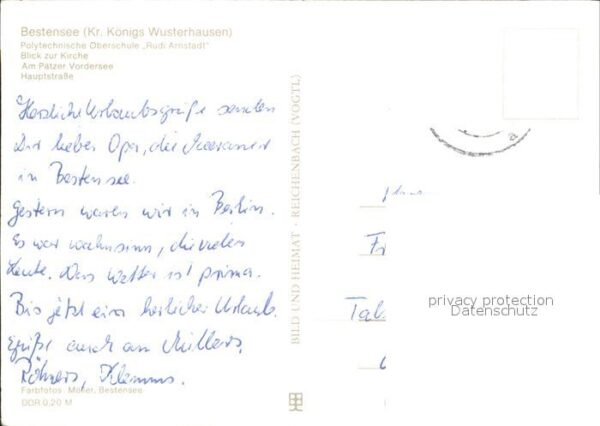 Bestensee (Kr. Königs Wusterhausen)
Polytechnische Oberschule „Rudi Arnstadt"
Blick zur Kirche
Am Pätzer Vordersee
Hauptstraße
Herzliche Urlaubsgrüße senden
Dir lieber Opa, die Meeraner
in Bestensee.
Gestern waren wir in Berlin.
Es war wahnsinn, die vielen
Leute. Das Wetter ist prima.
Bis jetzt ein herlicher Urlaub.
Grüße auch an Müllers,
Röhners, Klemms.
Farbfotos: Möller, Bestensee
DDR 0,20 M
BILD UND HEIMAT · REICHENBACH (VOGTL)
Fr
Tal
privacy protection
Datenschutz